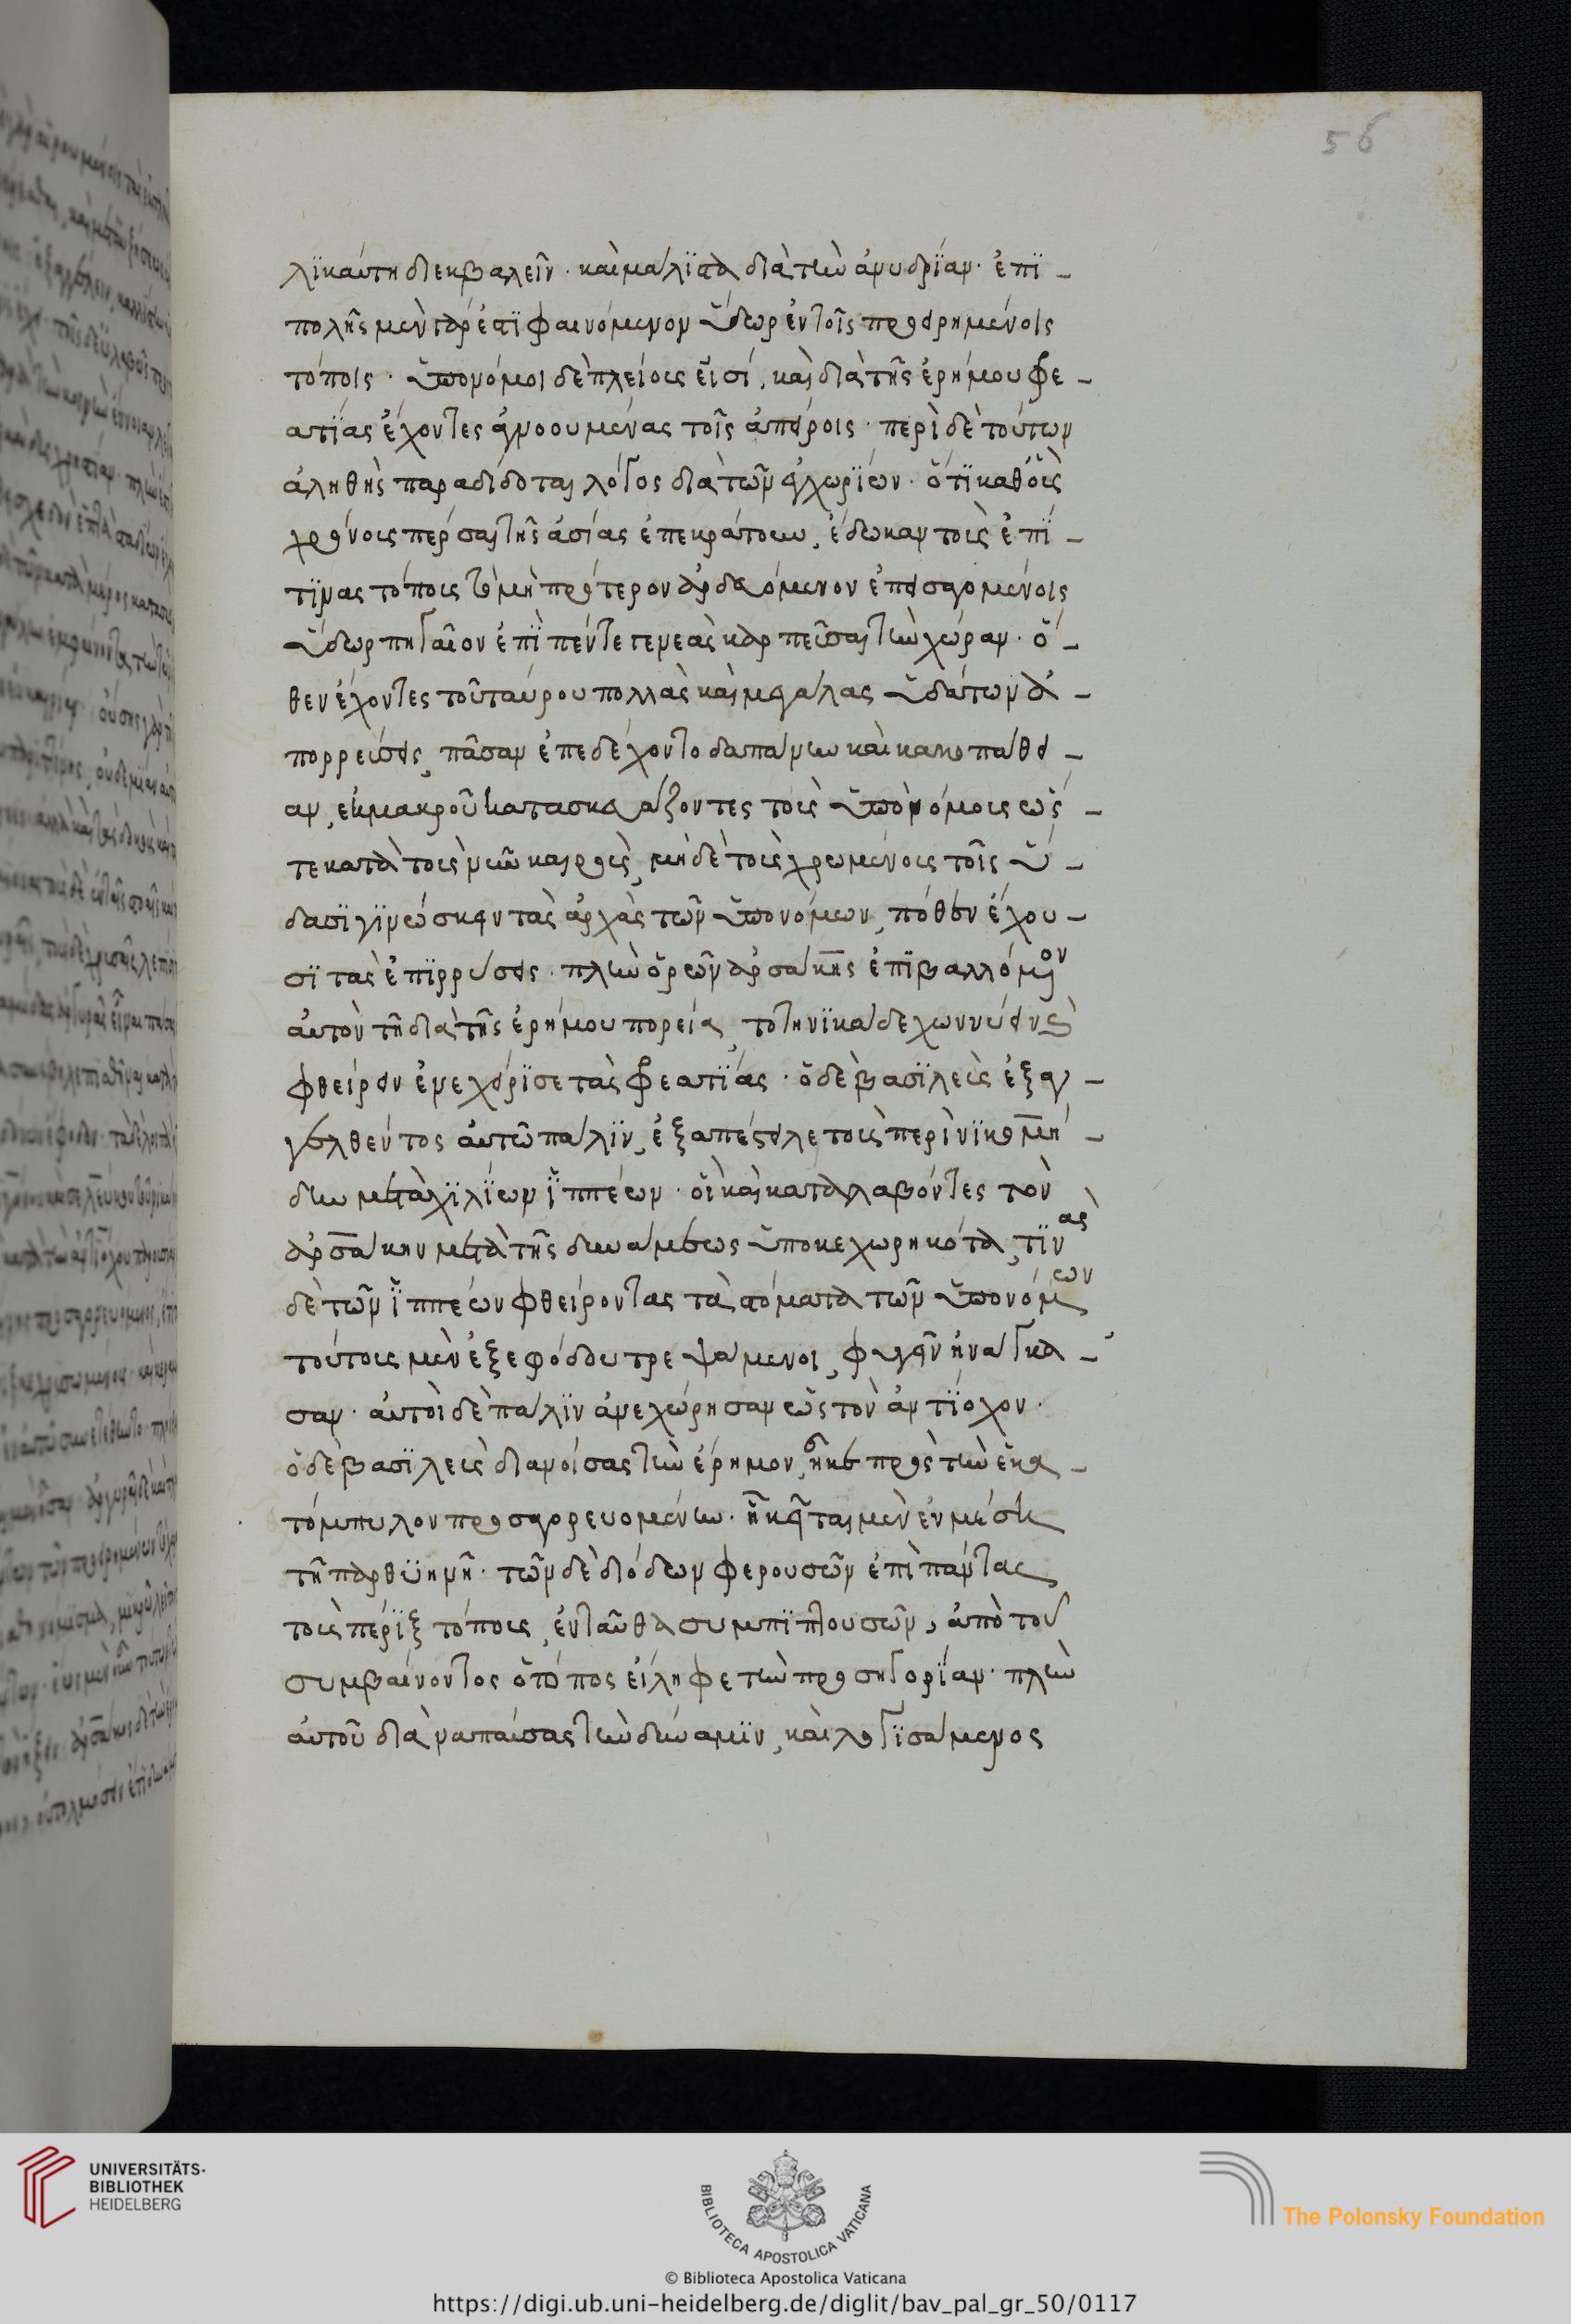 56
λϊκαύτη διεκβαλεῖν · καὶ μάλϊστα διὰ τὴν ἀνυδρΐαν · ἐπϊ -
πολῆς μὲν γὰρ ἐστϊ φαινόμενον ὕδωρ ἐν τοῖς προειρημένοις
τόποις · ὑπονόμοι δὲ πλείους εἰσί, καὶ διὰ τῆς ἐρήμου φρε -
ατϊας ἔχοντες ἀγνοουμένας τοῖς ἀπείροις · περὶ δὲ τούτων
ἀληθὴς παραδίδοται λόγος διὰ τῶν ἐγχωρΐων · ὅτϊ καθ' οὓς
χρόνους πέρσαι τῆς ἀσίας ἐπεκράτουν, ἔδωκαν τοῖς ἐπΐ -
τϊνας τόπους τῶν μὴ πρότερον ἀρδευόμενον ἐπεισαγομένοις
ὕδωρ πηγαῖον ἐπϊ πέντε γενεὰς καρπεῦσαι τὴν χώραν · ὅ -
θεν ἔχοντες τοῦ ταύρου πολλὰς καὶ μεγάλας ὑδάτων ἀ -
πορρεύσεις, πᾶσαν ἐπεδέχοντο δαπάνην καὶ κακοπάθει -
αν, ἐκ μακροῦ κατασκευάζοντες τοὺς ὑπονόμους ὥς -
τε κατὰ τοὺς νῦν καιροὺς, μηδὲ τοὺς χρωμένους τοῖς ὕ -
δασϊ γϊνώσκειν τὰς ἀρχὰς τῶν ὑπονόμων, πόθεν ἔχου -
σϊ τὰς ἐπϊρρύσεις · πλὴν ὁρῶν ἀρσάκης ἐπϊβαλλόμενον
αὐτὸν τῇ διὰ τῆς ἐρήμου πορείᾳ, τοτηνϊκάδε χωννύειν καὶ
φθείρειν ἐνεχείρϊσε τὰς φρεατΐας · ὁ δὲ βασϊλεὺς ἐξαγ -
γελθέντος αὐτῷ πάλϊν, ἐξαπέστειλε τοὺς περὶ νϊκομή -
δην μετὰ χϊλΐων ἱππέων · οἳ καὶ καταλαβόντες τὸν
ἀρσάκην μετὰ τῆς δυνάμεως ὑποκεχωρηκότα, τϊνὰς
δὲ τῶν ἱππέων φθείροντας τὰ στόματα τῶν ὑπονόμων
τούτους μὲν ἐξ ἐφόδου τρεψάμενοι, φυγεῖν ἠνάγκα -
σαν · αὐτοὶ δὲ πάλϊν ἀνεχώρησαν ὡς τὸν ἀντΐοχον ·
ὁ δὲ βασϊλεὺς διανύσας τὴν ἔρημον, ἧκε πρὸς τὴν ἑκα -
τόμπυλον προσαγορευομένην · ἣ κεῖται μὲν ἐν μέσῃ
τῇ παρθϋηνῇ · τῶν δὲ διόδων φερουσῶν ἐπὶ πάντας
τοὺς πέρϊξ τόπους, ἐνταῦθα συμπϊπτουσῶν, ἀπὸ τοῦ
συμβαίνοντος ὁ τόπος εἴληφε τὴν προσηγορΐαν · πλὴν
αὐτοῦ διαναπαύσας τὴν δύναμϊν, καὶ λογϊσάμενος
UNIVERSITÄTS-
BIBLIOTHEK
HEIDELBERG
BIBLIOTECA APOSTOLICA VATICANA
The Polonsky Foundation
© Biblioteca Apostolica Vaticana
https://digi.ub.uni-heidelberg.de/diglit/bav_pal_gr_50/0117